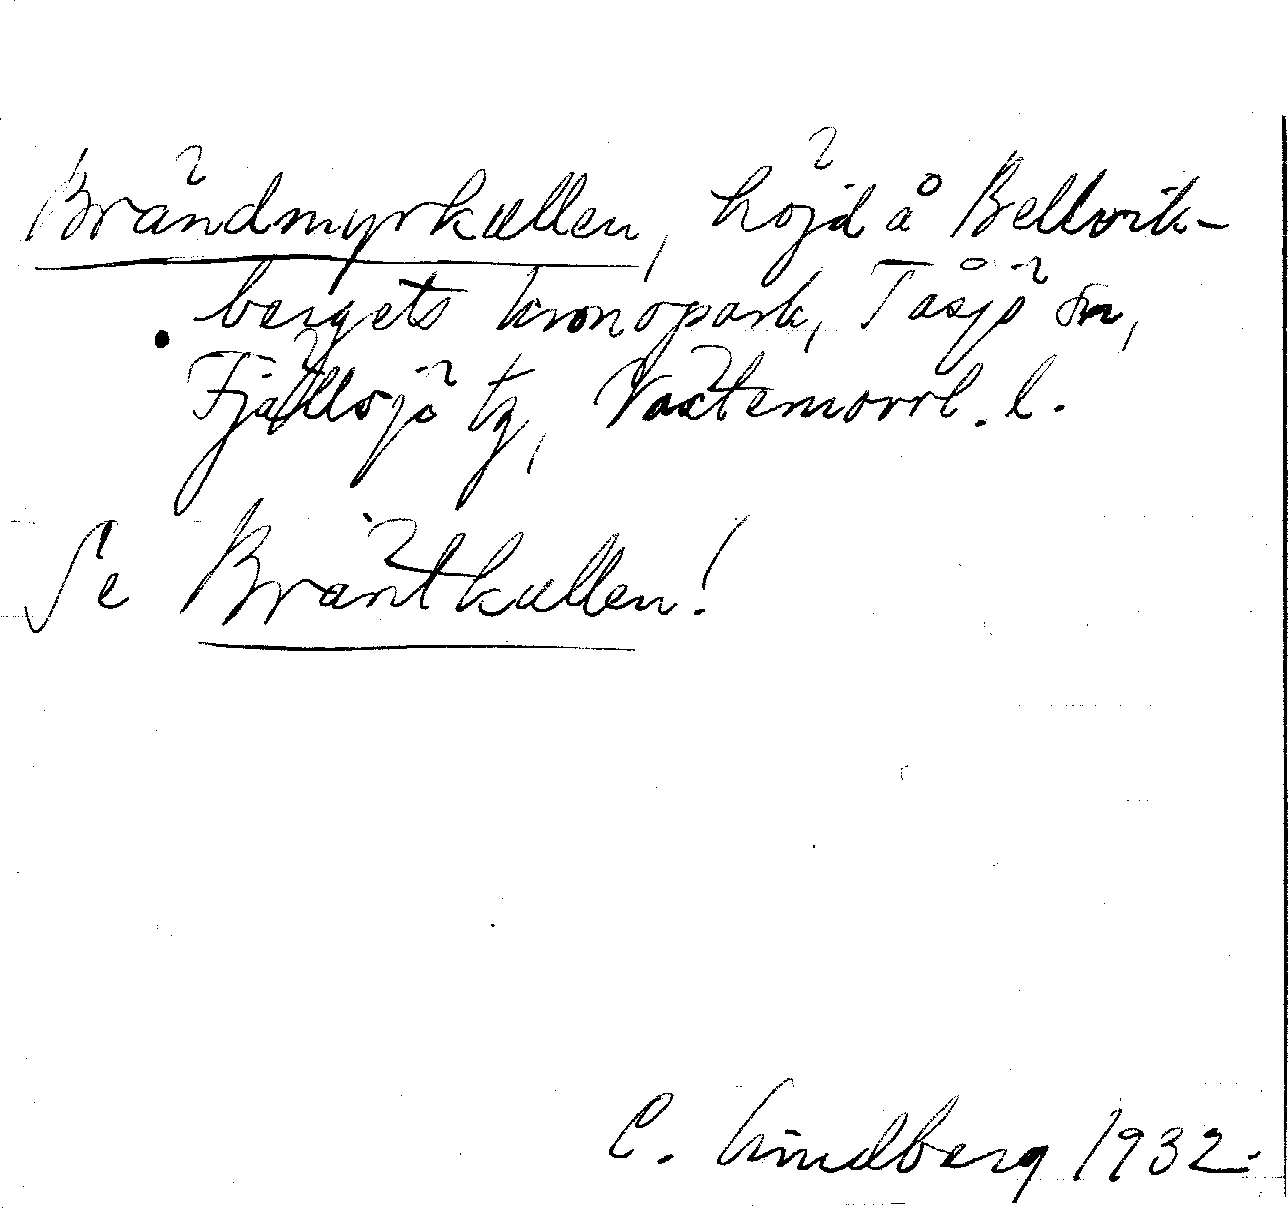 Brändmyrkullen, höjd å Bellvik-
bergets kronopark, Tåsjö sn,
Fjällsjö tg, Västernorrl. l.
Se Bräntkullen!
C. Lindberg 1932.